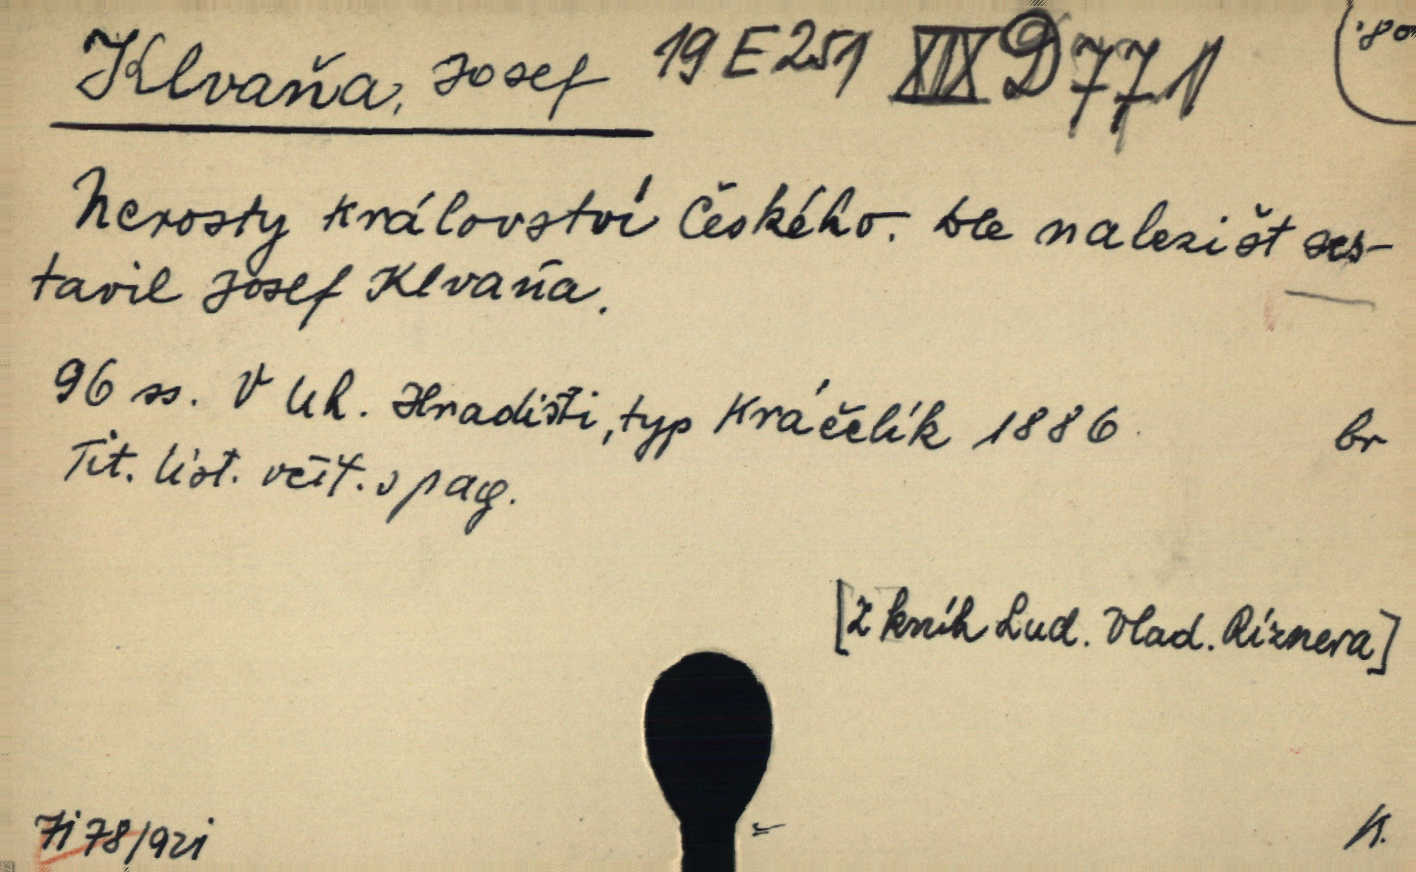 Klvaňa, Josef 19 E 251 XIX D 771
Nerosty království Českého. Dle nalezišť ses-
tavil Josef Klvaňa.
96 ss. V Uh. Hradišti, typ Kráčelík 1886. br
Tit. list. včít. v pag.
[Z kníh Lud. Vlad. Riznera]
K.